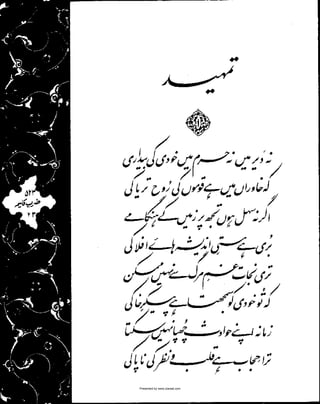 تمہید
نہ دیر میں نہ حرم میں خودی کی بیداری
کہ خاوراں میں ہے قوموں کی روح تریاکی
اگر نہ سہل ہوں تجھ پر زمیں کے ہنگامے
بری ہے مستیِ اندیشہ ہائے افلاکی
تری نجات غمِ مرگ سے نہیں ممکن
کہ تو خودی کو سمجھتا ہے پیکرِ خاکی
زمانہ اپنے حوادث چھپا نہیں سکتا
ترا حجاب ہے قلب و نظر کی ناپاکی
۵۲۳
ضربِ کلیم
۲۳
Presented by www.ziaraat.com